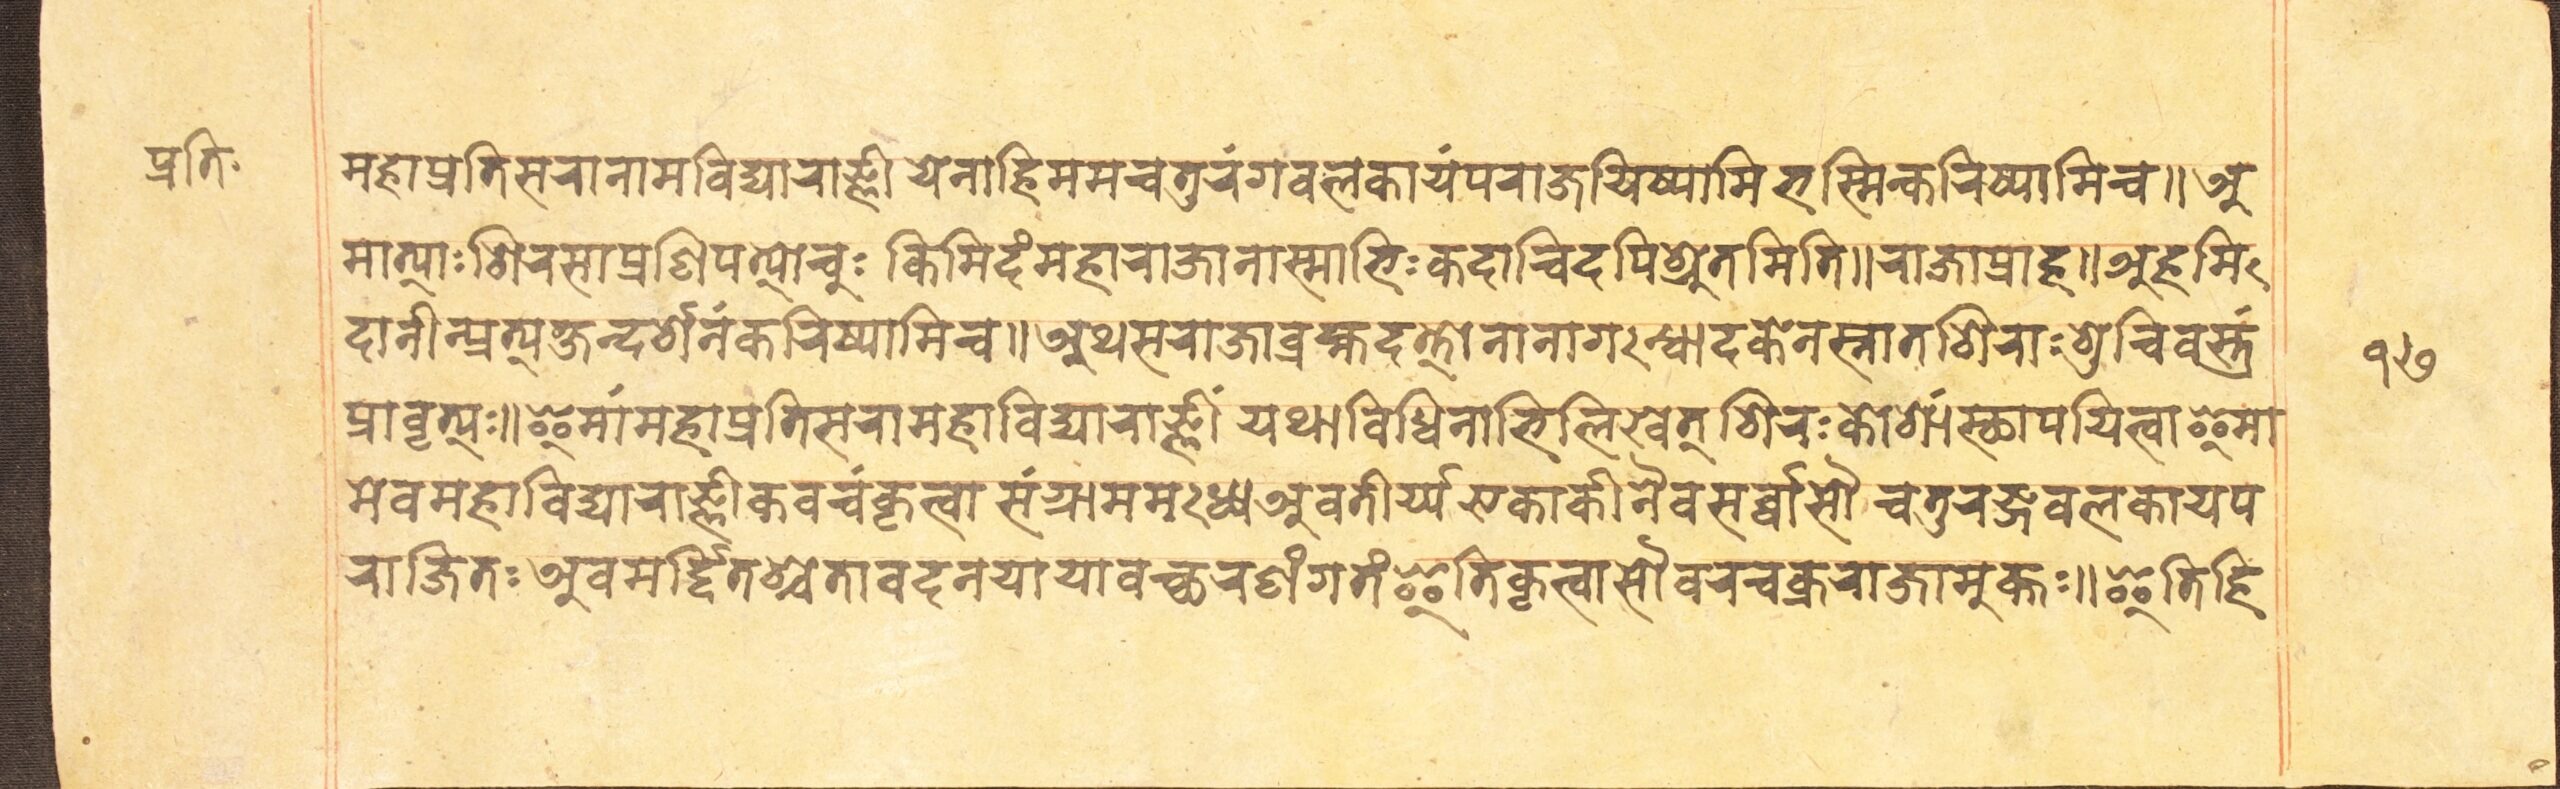 प्रतिः
महाप्रतिसरानामविद्याराज्ञी येनाहिममचतुरंगवलकायंपराजयिष्यामि भस्मिन्करिष्यामिच॥ अ
मात्याः शिरसाप्रणिपत्योचुः किमिदंमहाराजानास्माभिः कदाचिदपिश्रुतमिति॥ राजाप्राह॥ अहमि
दानीन्प्रत्यक्षन्दर्शनंकरिष्यामिच॥ अथसराजाब्रह्मदत्तोनानागन्धोदकेनस्नातशिराः शुचिवस्त्रं
प्रावृत्यः॥ इमांमहाप्रतिसरामहाविद्याराज्ञीं यथाविधिनाभिलिखेत् शिरः कोशेस्छापयित्वाइमा
मेवमहाविद्याराज्ञीकवचंकृत्वा संग्राममध्येअवतीर्य्य एकाकीनैवसर्व्वासौ चतुरङ्गवलकायप
राजितः अवमर्द्दितश्चेतावदनयायावच्छरणंगतंइतिकृत्वासौवरचक्रराजामुक्तः॥ इतिहि
१७